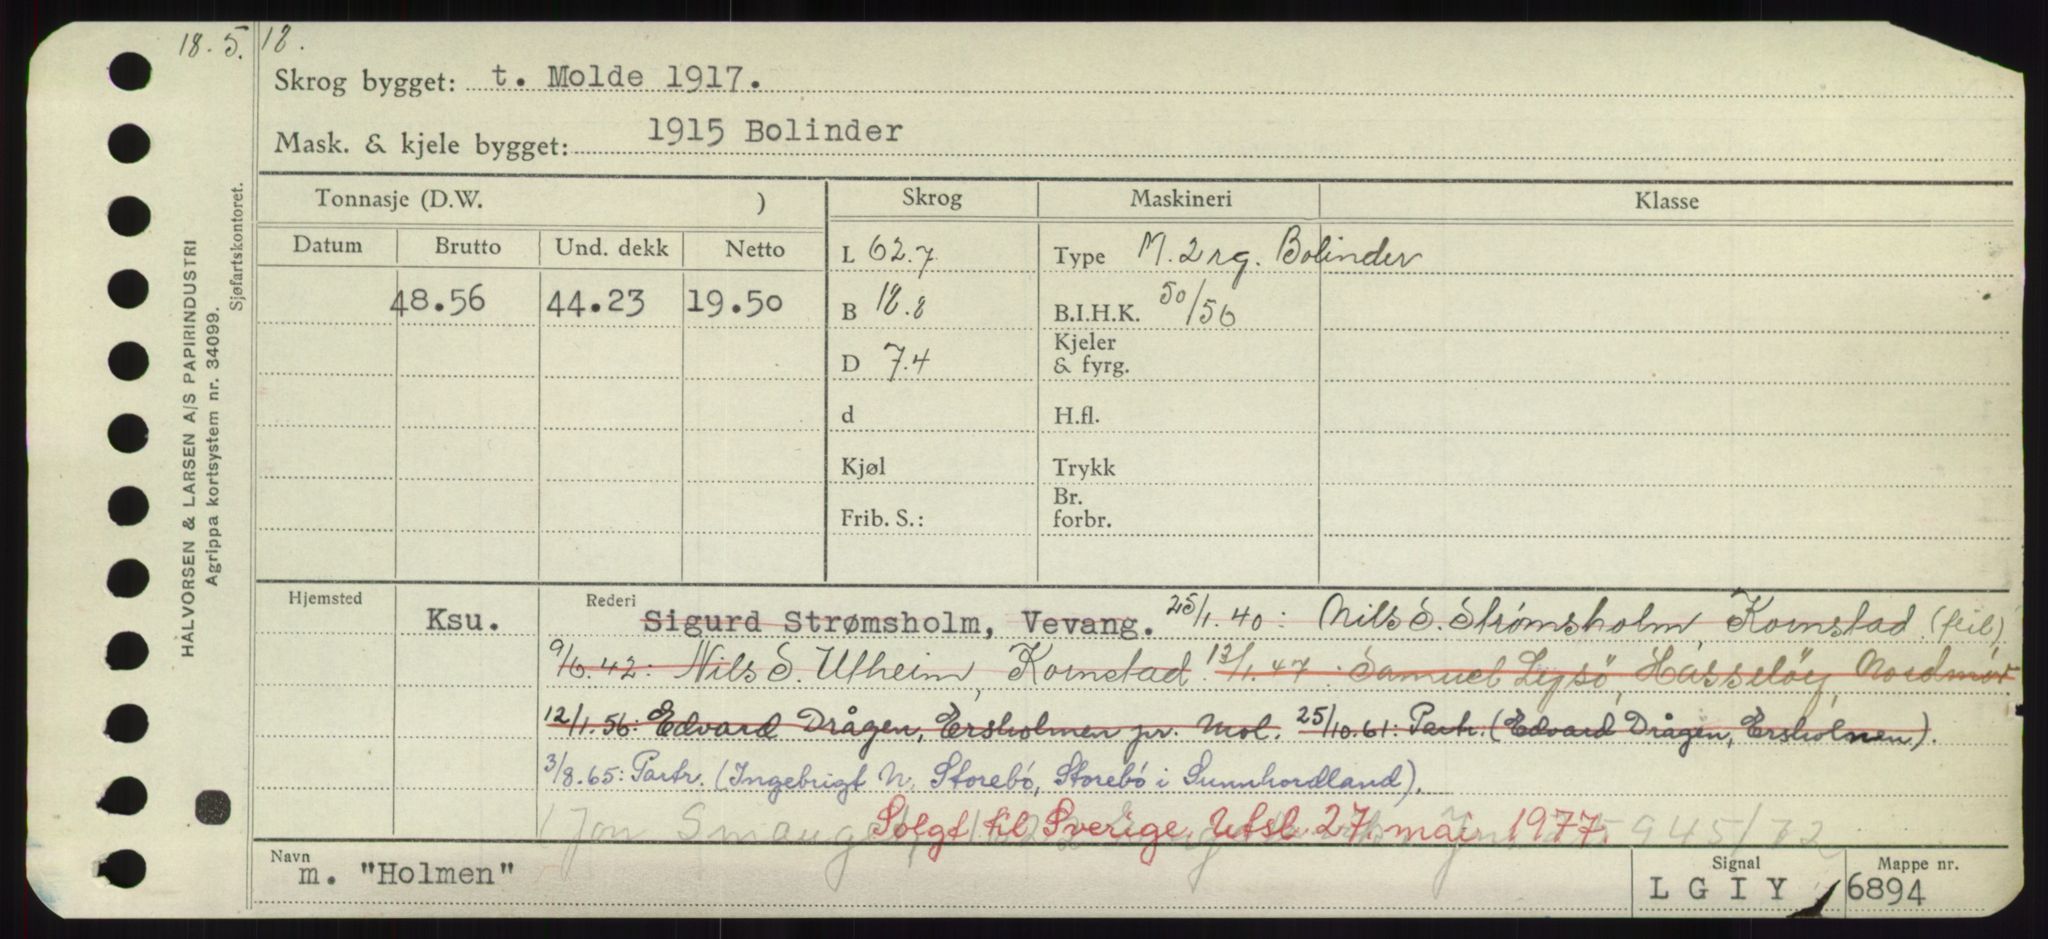 18. 5. 18.
Skrog bygget: t. Molde 1917.
Mask. & kjele bygget: 1915 Bolinder
HALVORSEN & LARSEN A/S PAPIRINDUSTRI
Agrippa kortsystem nr. 34099.
Sjøfartskontoret.
Tonnasje (D.W. ) Skrog Maskineri Klasse
Datum Brutto Und. dekk Netto
48.56 44.23 19.50
L 62.7 Type M. 2 rg. Bolinder
B 18.8 B.I.H.K. 50/56
D 7.4 Kjeler & fyrg.
d H.fl.
Kjøl Trykk
Frib. S.: Br. forbr.
Hjemsted Rederi
Ksu. Sigurd Strømsholm, Vevang. 25/1.40: Nils S. Strømsholm, Kornstad (feil)
9/6.42: Nils S. Utheim, Kornstad. 13/1.47: Samuel Legsö, Hasseløy, Nordmør
12/1.56: Edvard Drågen, Ersholmen pr. Mol. 25/10.61: Partr. (Edvard Drågen, Ersholmen).
3/8.65: Partr. (Ingebrigt N. Storebö, Storebö i Sunnhordland).
(Jon 945/72
Solgt til Sverige. Utsl. 27. mai 1977.
Navn Signal Mappe nr.
m. "Holmen" LGIY 6894